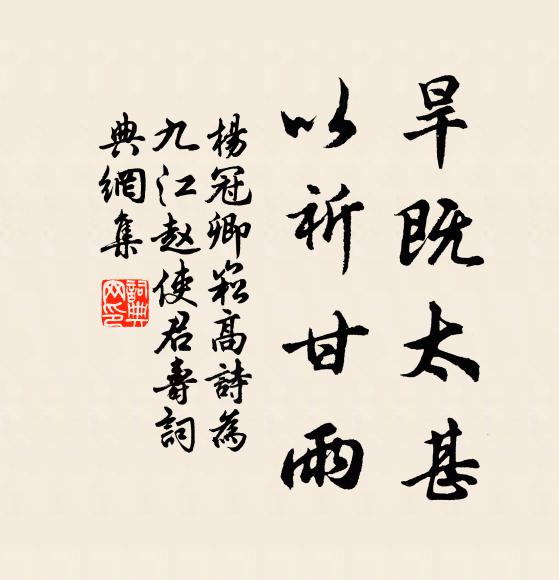 旱既太甚
以祈甘雨
楊冠卿崧高詩為
九江赵使君壽詞
典網集
詞典
网印